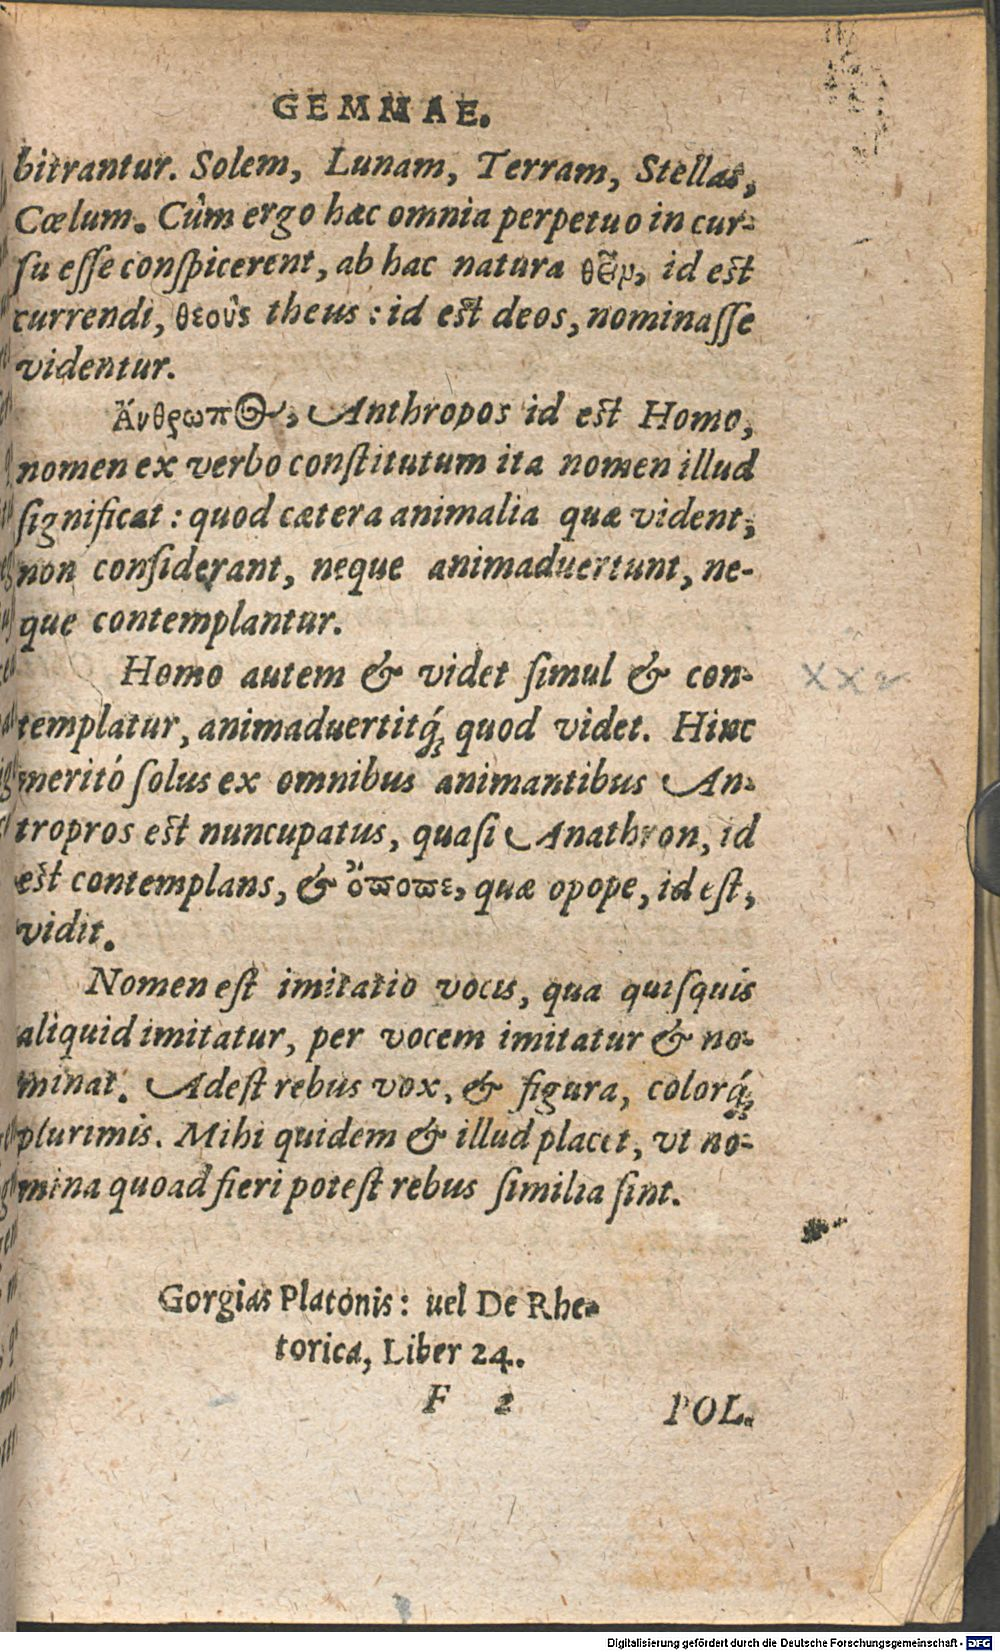 GEMMAE.
bitrantur. Solem, Lunam, Terram, Stellas,
Cœlum. Cûm ergo hac omnia perpetuo in cur-
ſu eſſe conſpicerent, ab hac natura θεῖν, id est
currendi, θεοὺς theus : id est deos, nominaſſe
videntur.
Ἄνθρωπος, Anthropos id est Homo,
nomen ex verbo conſtitutum ita nomen illud
ſignificat : quod cætera animalia quæ vident,
non conſiderant, neque animaduertunt, ne-
que contemplantur.
Homo autem & videt ſimul & con-
templatur, animaduertitq́; quod videt. Hinc
meritó ſolus ex omnibus animantibus An-
tropros est nuncupatus, quaſi Anathron, id
est contemplans, & ὄπωπε, quæ opope, id eſt,
vidit.
Nomen eſt imitatio vocis, qua quiſquis
aliquid imitatur, per vocem imitatur & no-
minat. Adeſt rebus vox, & figura, colorq́;
plurimis. Mihi quidem & illud placet, vt no-
mina quoad fieri poteſt rebus ſimilia ſint.
Gorgias Platonis: uel De Rhe-
torica, Liber 24.
F 2
POL.
Digitalisierung gefördert durch die Deutsche Forschungsgemeinschaft - DFG